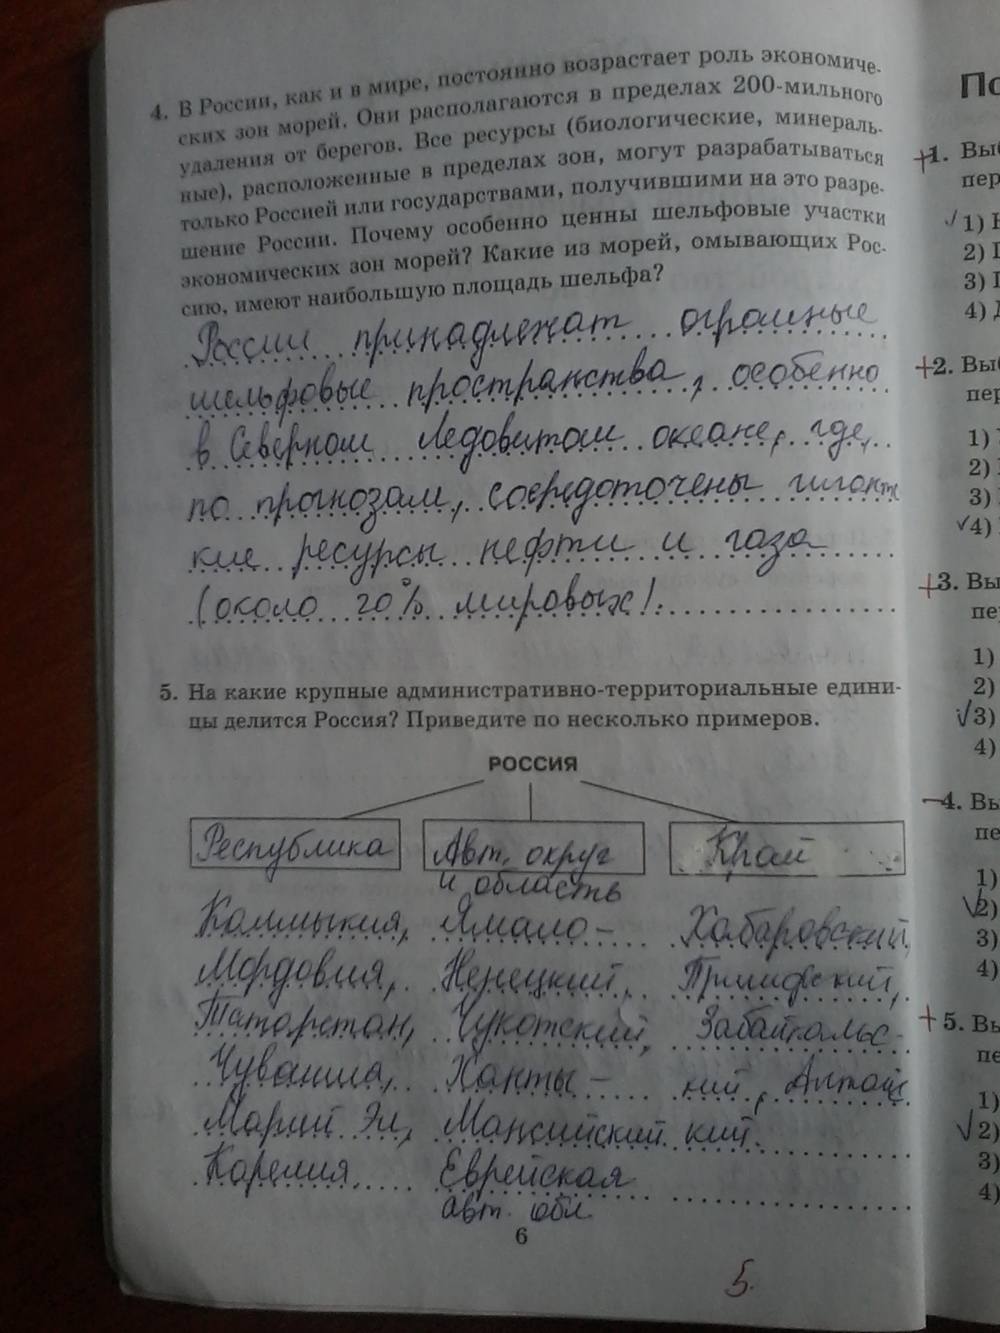 4. В России, как и в мире, постоянно возрастает роль экономиче-
ских зон морей. Они располагаются в пределах 200-мильного
удаления от берегов. Все ресурсы (биологические, минераль-
ные), расположенные в пределах зон, могут разрабатываться
только Россией или государствами, получившими на это разре-
шение России. Почему особенно ценны шельфовые участки
экономических зон морей? Какие из морей, омывающих Рос-
сию, имеют наибольшую площадь шельфа?
России принадлежат огромные
шельфовые пространства, особенно
в Северном Ледовитом океане, где,
по прогнозам, сосредоточены гигантс
кие ресурсы нефти и газа
(около 20% мировых).
5. На какие крупные административно-территориальные едини-
цы делится Россия? Приведите по несколько примеров.
РОССИЯ
Республика Авт. округ Край
и область
Калмыкия, Ямало- Хабаровский,
Мордовия, Ненецкий, Приморский,
Татарстан, Чукотский, Забайкальс-
Чувашия, Ханты- кий, Алтайс
Марий Эл, Мансийский кий.
Карелия Еврейская
авт. обл.
6
5.
По
+1. Выб
пер
1)
2)
3)
4)
+2. Выб
пер
1)
2)
3)
4)
+3. Вы
пе
1)
2)
3)
4)
-4. Вы
пе
1)
2)
3)
4)
+5. Вы
пе
1)
2)
3)
4)